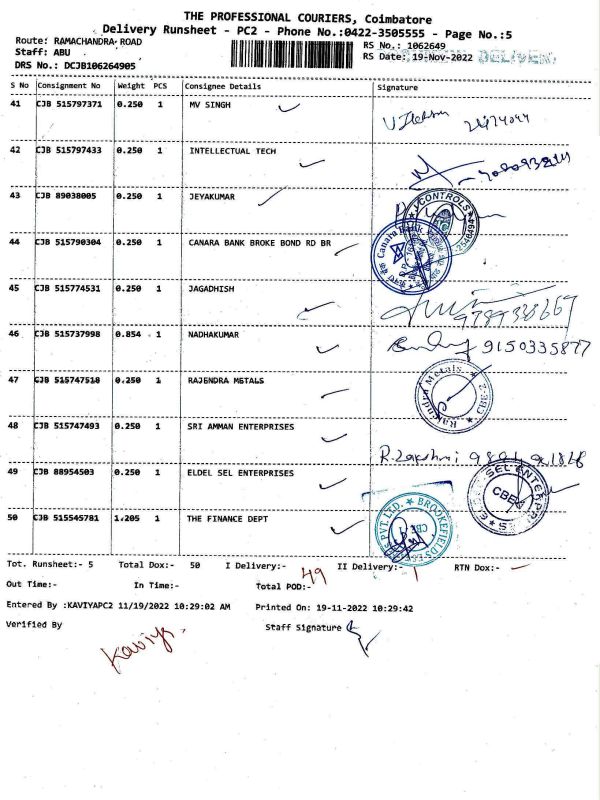 THE PROFESSIONAL COURIERS, Coimbatore
Delivery Runsheet - PC2 - Phone No.:0422-3505555 - Page No.:5
Route: RAMACHANDRA ROAD
RS No.: 1062649
Staff: ABU
RS Date: 19-Nov-2022
DRS No.: DCJB106264905
S No Consignment No Weight PCS Consignee Details Signature
41 CJB 515797371 0.250 1 MV SINGH
42 CJB 515797433 0.250 1 INTELLECTUAL TECH
43 CJB 89038005 0.250 1 JEYAKUMAR
CONTROLS
44 CJB 515790304 0.250 1 CANARA BANK BROKE BOND RD BR
Canara Bank
45 CJB 515774531 0.250 1 JAGADHISH
46 CJB 515737998 0.854 1 NADHAKUMAR 9150335877
47 CJB 515747518 0.250 1 RAJENDRA METALS
Metals CBE-2
48 CJB 515747493 0.250 1 SRI AMMAN ENTERPRISES
R. Lakshmi
49 CJB 88954503 0.250 1 ELDEL SEL ENTERPRISES
CBE
50 CJB 515545781 1.205 1 THE FINANCE DEPT
PVT. LTD. BROOKEFIELDS CBE
Tot. Runsheet:- 5 Total Dox:- 50 I Delivery:- 49 II Delivery:- 1 RTN Dox:- —
Out Time:- In Time:- Total POD:-
Entered By :KAVIYAPC2 11/19/2022 10:29:02 AM Printed On: 19-11-2022 10:29:42
Verified By Staff Signature
Kaviya.